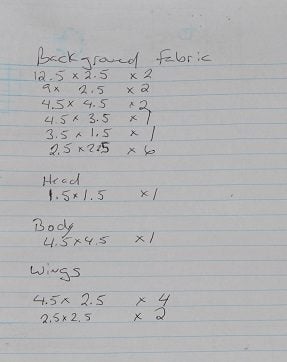 Background fabric
12.5 x 2.5 x 2
9 x 2.5 x 2
4.5 x 4.5 x 2
4.5 x 3.5 x 1
3.5 x 1.5 x 1
2.5 x 2.5 x 6
Head
1.5 x 1.5 x 1
Body
4.5 x 4.5 x 1
Wings
4.5 x 2.5 x 4
2.5 x 2.5 x 2